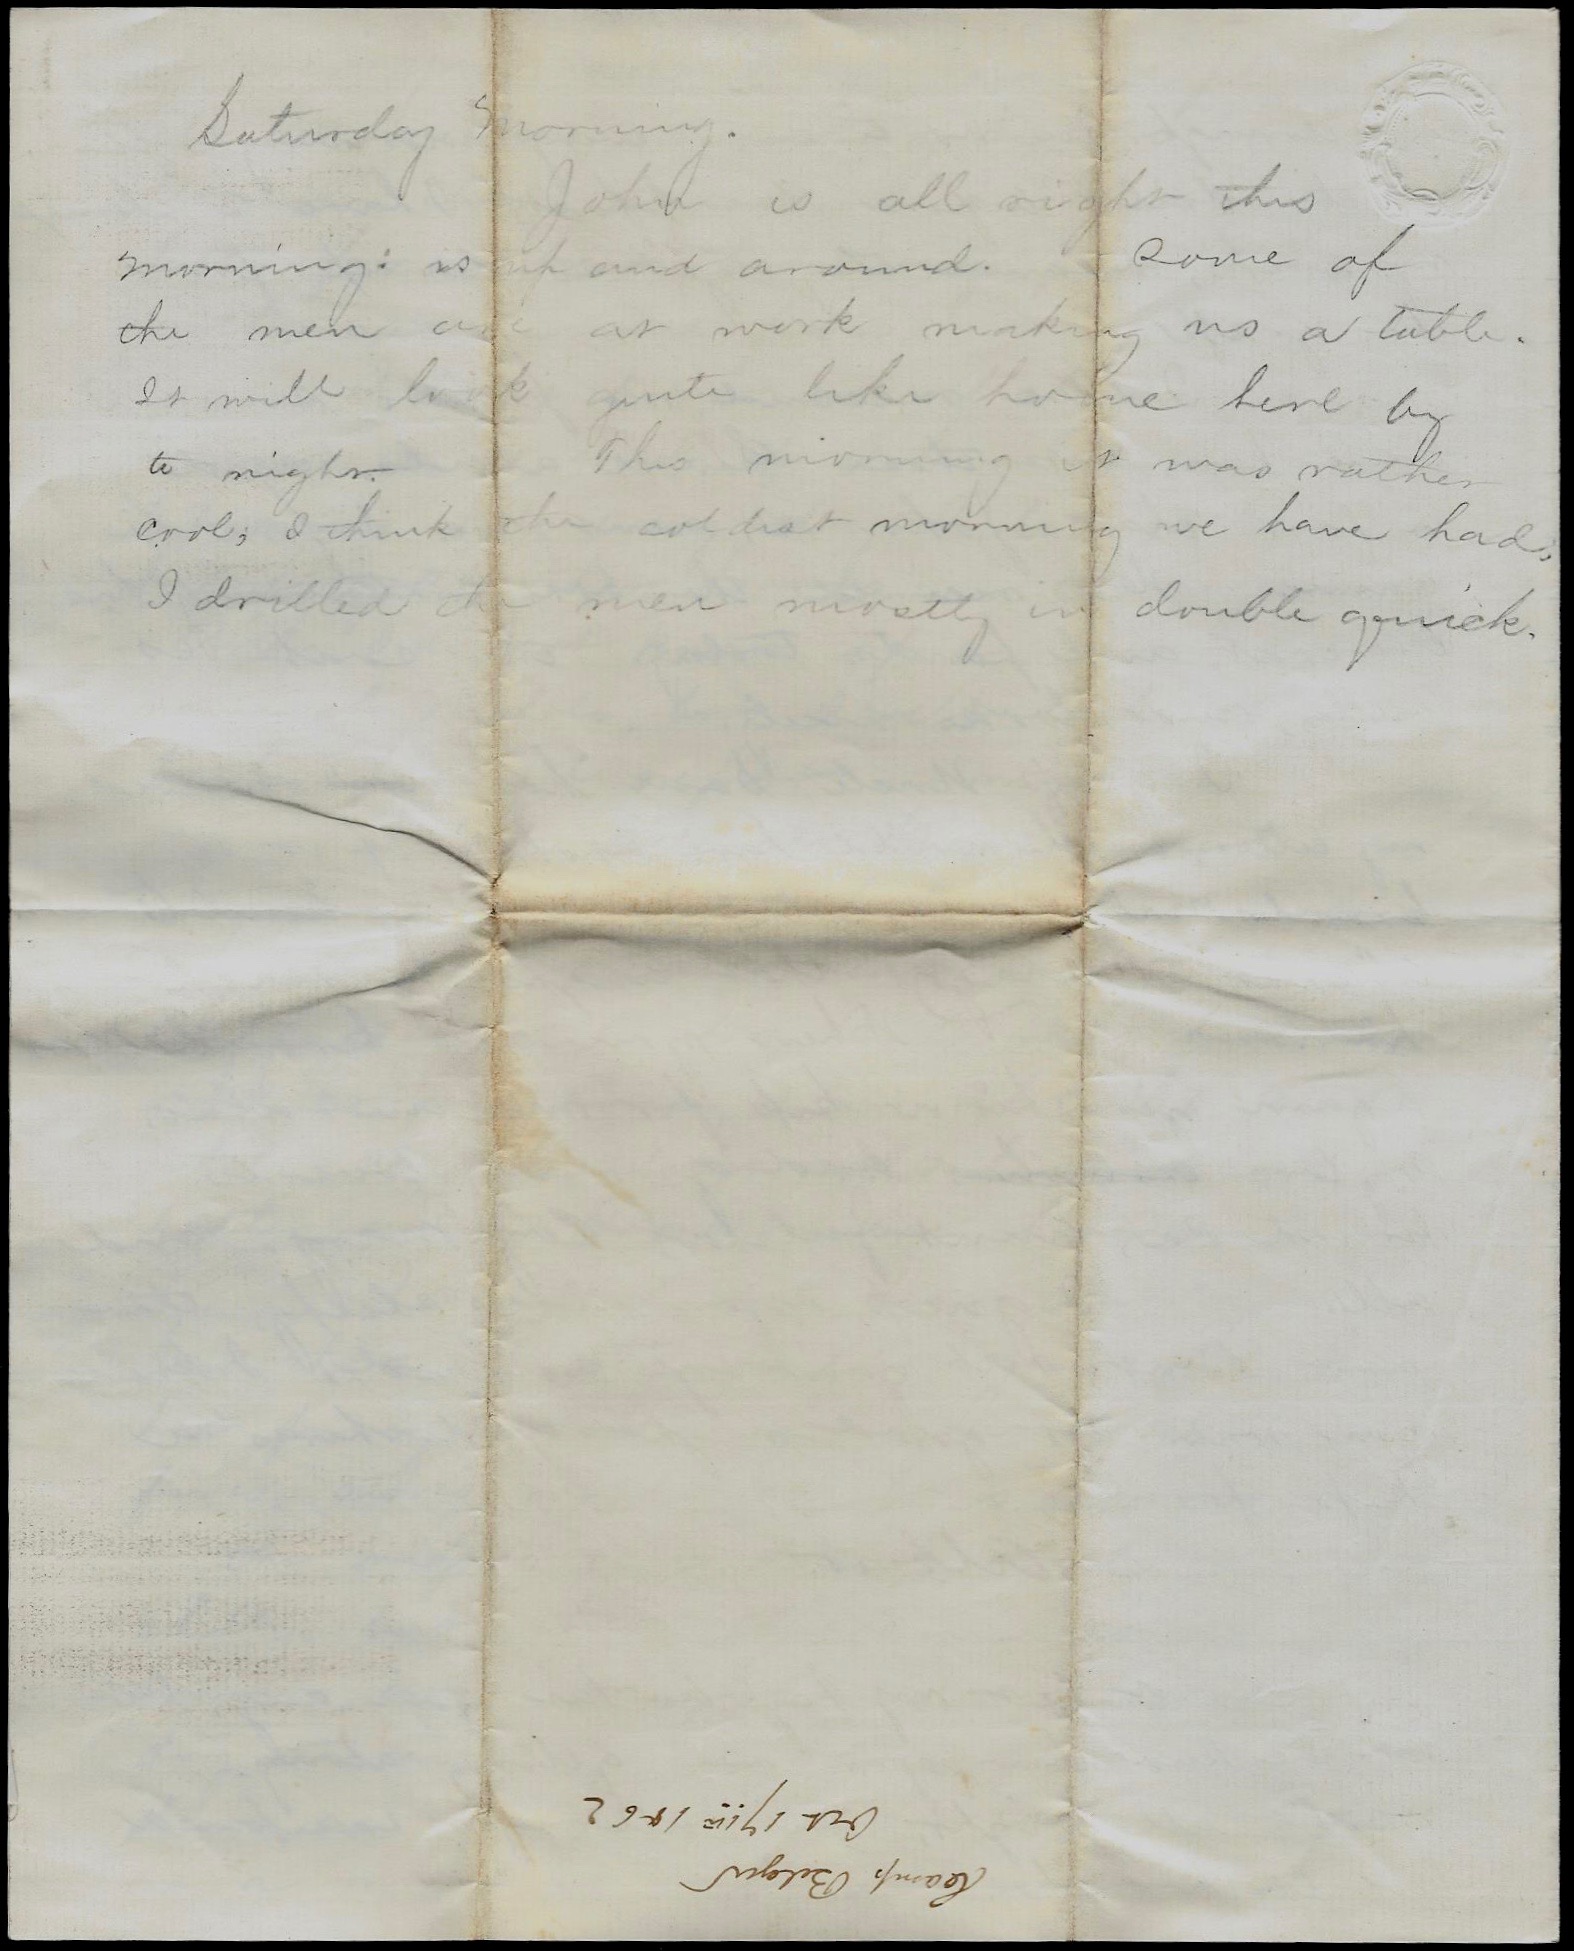 Saturday Morning.
John is all right this
morning: is up and around. Some of
the men are at work making us a table.
It will look quite like home here by
to night. This morning it was rather
cool; I think the coldest morning we have had.
I drilled the men mostly in double quick.
Camp Belger
Oct 17th 1862